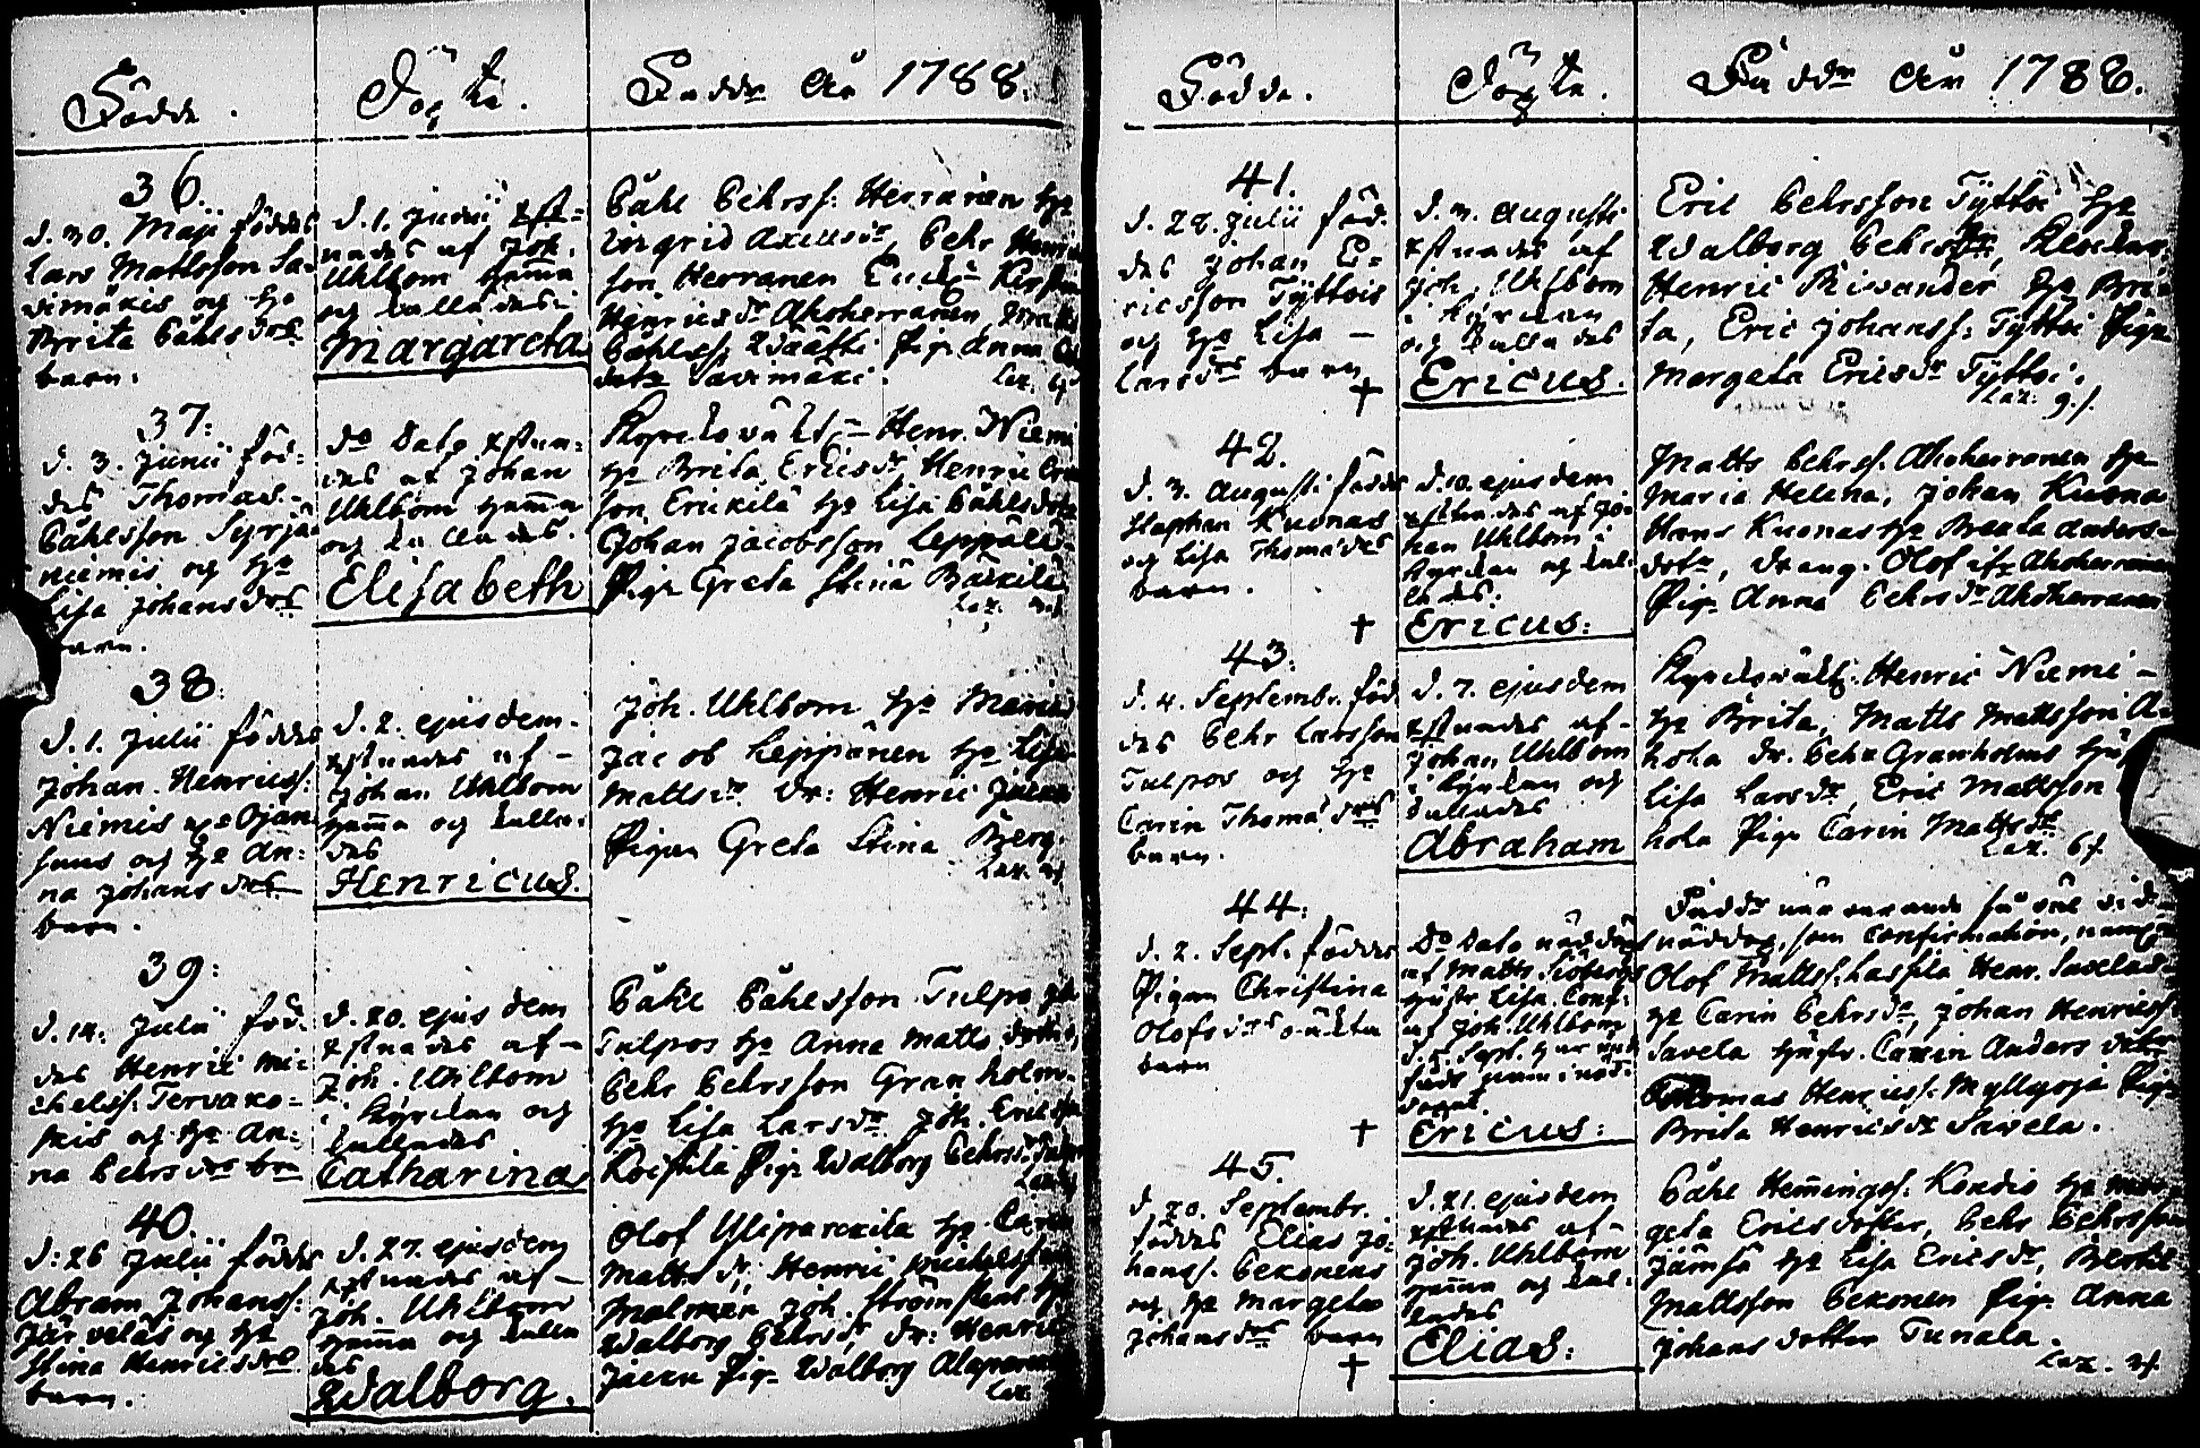 Födde.
Döpte.
Faddr År 1788.
36.
d. 30. Maji föddes
Lars Mattsson Sa-
vimäkis og h:o
Brita Påhlsdrs
barn.
d. 1. Junii xst-
nades af Joh.
Uhlbom hemma
og kallades
Margareta
Påhl Pehrss: Herranen h:o
Ingrid Axelsdr, Pehr Henric
son Herranen Enck: Kirstin
Henricsdr Ahoherranen, Matts
Påhlss: Wäätti Pig. Anna
dotr Savimäki.
37:
d. 3. Junii föd-
des Thomas
Påhlsson Syrjä-
niemis og h:o
Lisa Johansdrs
barn.
Do Dato xstna-
des af Johan
Uhlbom hemma
og kallades.
Elisabeth
Kyrckovärd: Henr. Niemi
h:o Brita Ericsdr Henric Eric
son Erickilä h:o Lisa Påhlsdotr
Johan Jacobsson Leppälä
Pig: Greta Stina Bäckilä
38:
d. 1. Julii föddes
Johan Henricss:
Niemis og h:o An-
na Johans drs
barn.
d. 2. ejusdem
xstnades af
Johan Uhlbom
hemma og kalla-
des
Henricus.
Joh. Uhlbom h:o Maria
Jacob Leppänen h:o Lisa
Mattsdr Dr: Henric
Pigan Greta Stina Berg.
39:
d. 14. Julii föd-
des Henric Mi-
chelss: Tervako-
skis og h:o An-
na Pehrsdrs brn
d. 20. ejusdem
xstnades af
Joh. Uhlbom
i Kyrckan og
kallades
Catharina
Påhl Påhlsson Tulpo
Tulpos h:o Anna Matts dotr,
Pehr Pehrsson Granholm
h:o Lisa Larsdr Joh. Ericsson
Koistila Pig: Walborg Pehrsdr
40.
d: 26 Julii föddes
Abram Johanss:
Järveläs og h:o
Stina Henricsdrs
barn.
d. 27. ejusdem
xstnades af
Joh. Uhlbom
hemma og kalla
des
Walborg.
Olof Yliparckila h:o Carin
Matts dr, Henric Michelsson
Malmen Joh. Strömstens h:o
Walborg Pehrsdr, Dr: Henric
Pig: Walborg
Födde.
Döpte.
Faddr År 1788.
41.
d. 28. Julii föd-
des Johan E-
ricsson Tyttöis
og h:o Lisa
Larsdrs barn
†
d. 3. Augusti
xstnades af
Joh. Uhlbom
i Kyrckan
og kallades
Ericus.
Eric Pehrsson Tyttöi h:o
Walborg Pehrsdr, Klockar:
Henric Riwander h:o Bri-
ta, Eric Johanss: Tyttöi Pigan
Margeta Ericsdr Tyttöi.
42.
d. 3. Augusti föddes
Staphan Kuonas
og Lisa Thomædrs
barn.
†
d. 10. ejusdem
xstnades af Jo-
han Uhlbom i
Kyrckan og kal-
lades:
Ericus:
Matts Pehrss. Ahoherranen h:o
Maria Helena, Johan Kuona
Hans Kuonas h:o Beata Anders-
dotr, Dräng: Olof Ahoherranen
Pig: Anna Pehrsdr Ahoherranen
43:
d. 4. Septembr. föd-
des Pehr Larsson
Tulpos og h:o
Carin Thomædrs
barn.
d. 7. ejusdem
xstnades af
Johan Uhlbom
i Kyrckan og
kallades
Abraham
Kyrckovärd: Henric Niemi
h:o Brita, Matts Mattsson A-
hola Dr. Pehr Granholms
Lisa Larsdr, Eric Mattsson
hola Pig: Carin Matts dr
Laz: 6 f.
44:
d. 2. Sept. föddes
Pigan Christina
Olofsdrs oäkta
barn
†
Do Dato nöddöpt
af Matts Sjöbergs
hustr Lisa. Conf:
af Joh. Uhlbom
d. Sept.
Ericus:
Faddr närvarande så väl vid
nöddop, som Confirmation,
Olof Mattss: Lassila Henr. Savelas
h:o Carin Pehrsdr, Johan Henricss:
Savela hustr. Carin Anders dotr
Thomas Henricss: Myllyoja Pig:
Brita Henricsdr Savela.
45.
d. 20. Septembr.
föddes Elias Jo-
hanss: Pekonens
og h:o Margeta
Johansdrs barn
†
d. 21. ejusdem
xstnades af
Joh. Uhlbom
hemma og kal-
lades
Elias:
Påhl Hemmingss: Kondis h:o Mar-
geta Ericsdotter, Pehr Pehrsson
Jämsä h:o Lisa Ericsdr, Bertil
Mattsson Pekonen Pig: Anna
Johans dotter Tunala.